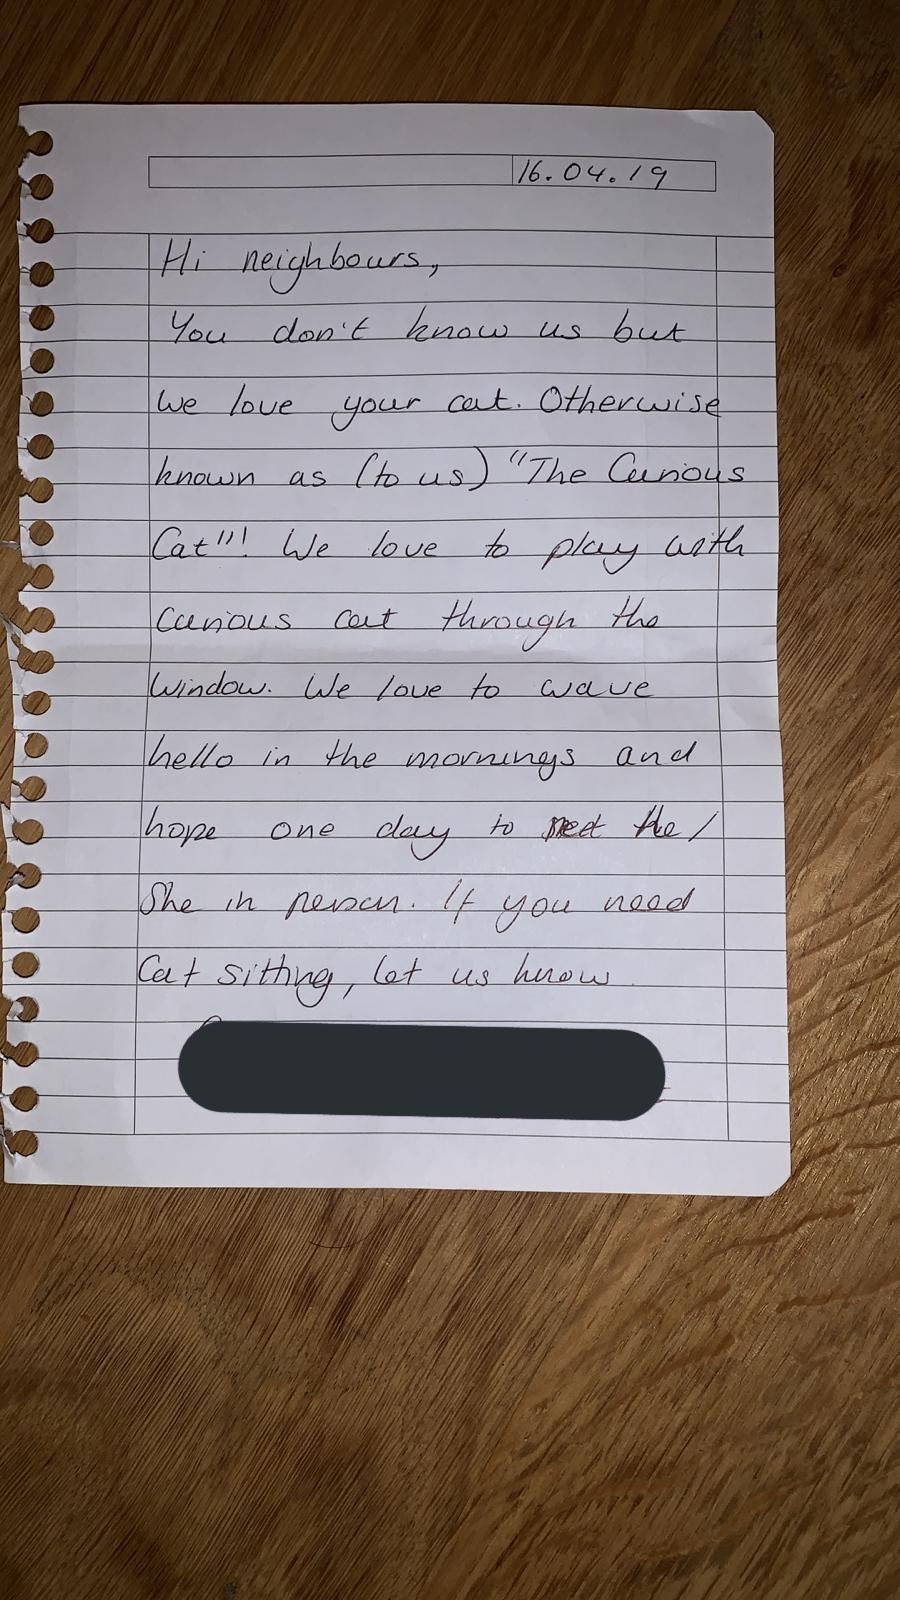 16.04.19
Hi neighbours,
You don't know us but
we love your cat. Otherwise
known as (to us) "The Curious
Cat"! We love to play with
curious cat through the
window. We love to wave
hello in the mornings and
hope one day to meet the/
She in person. If you need
Cat sitting, let us know.